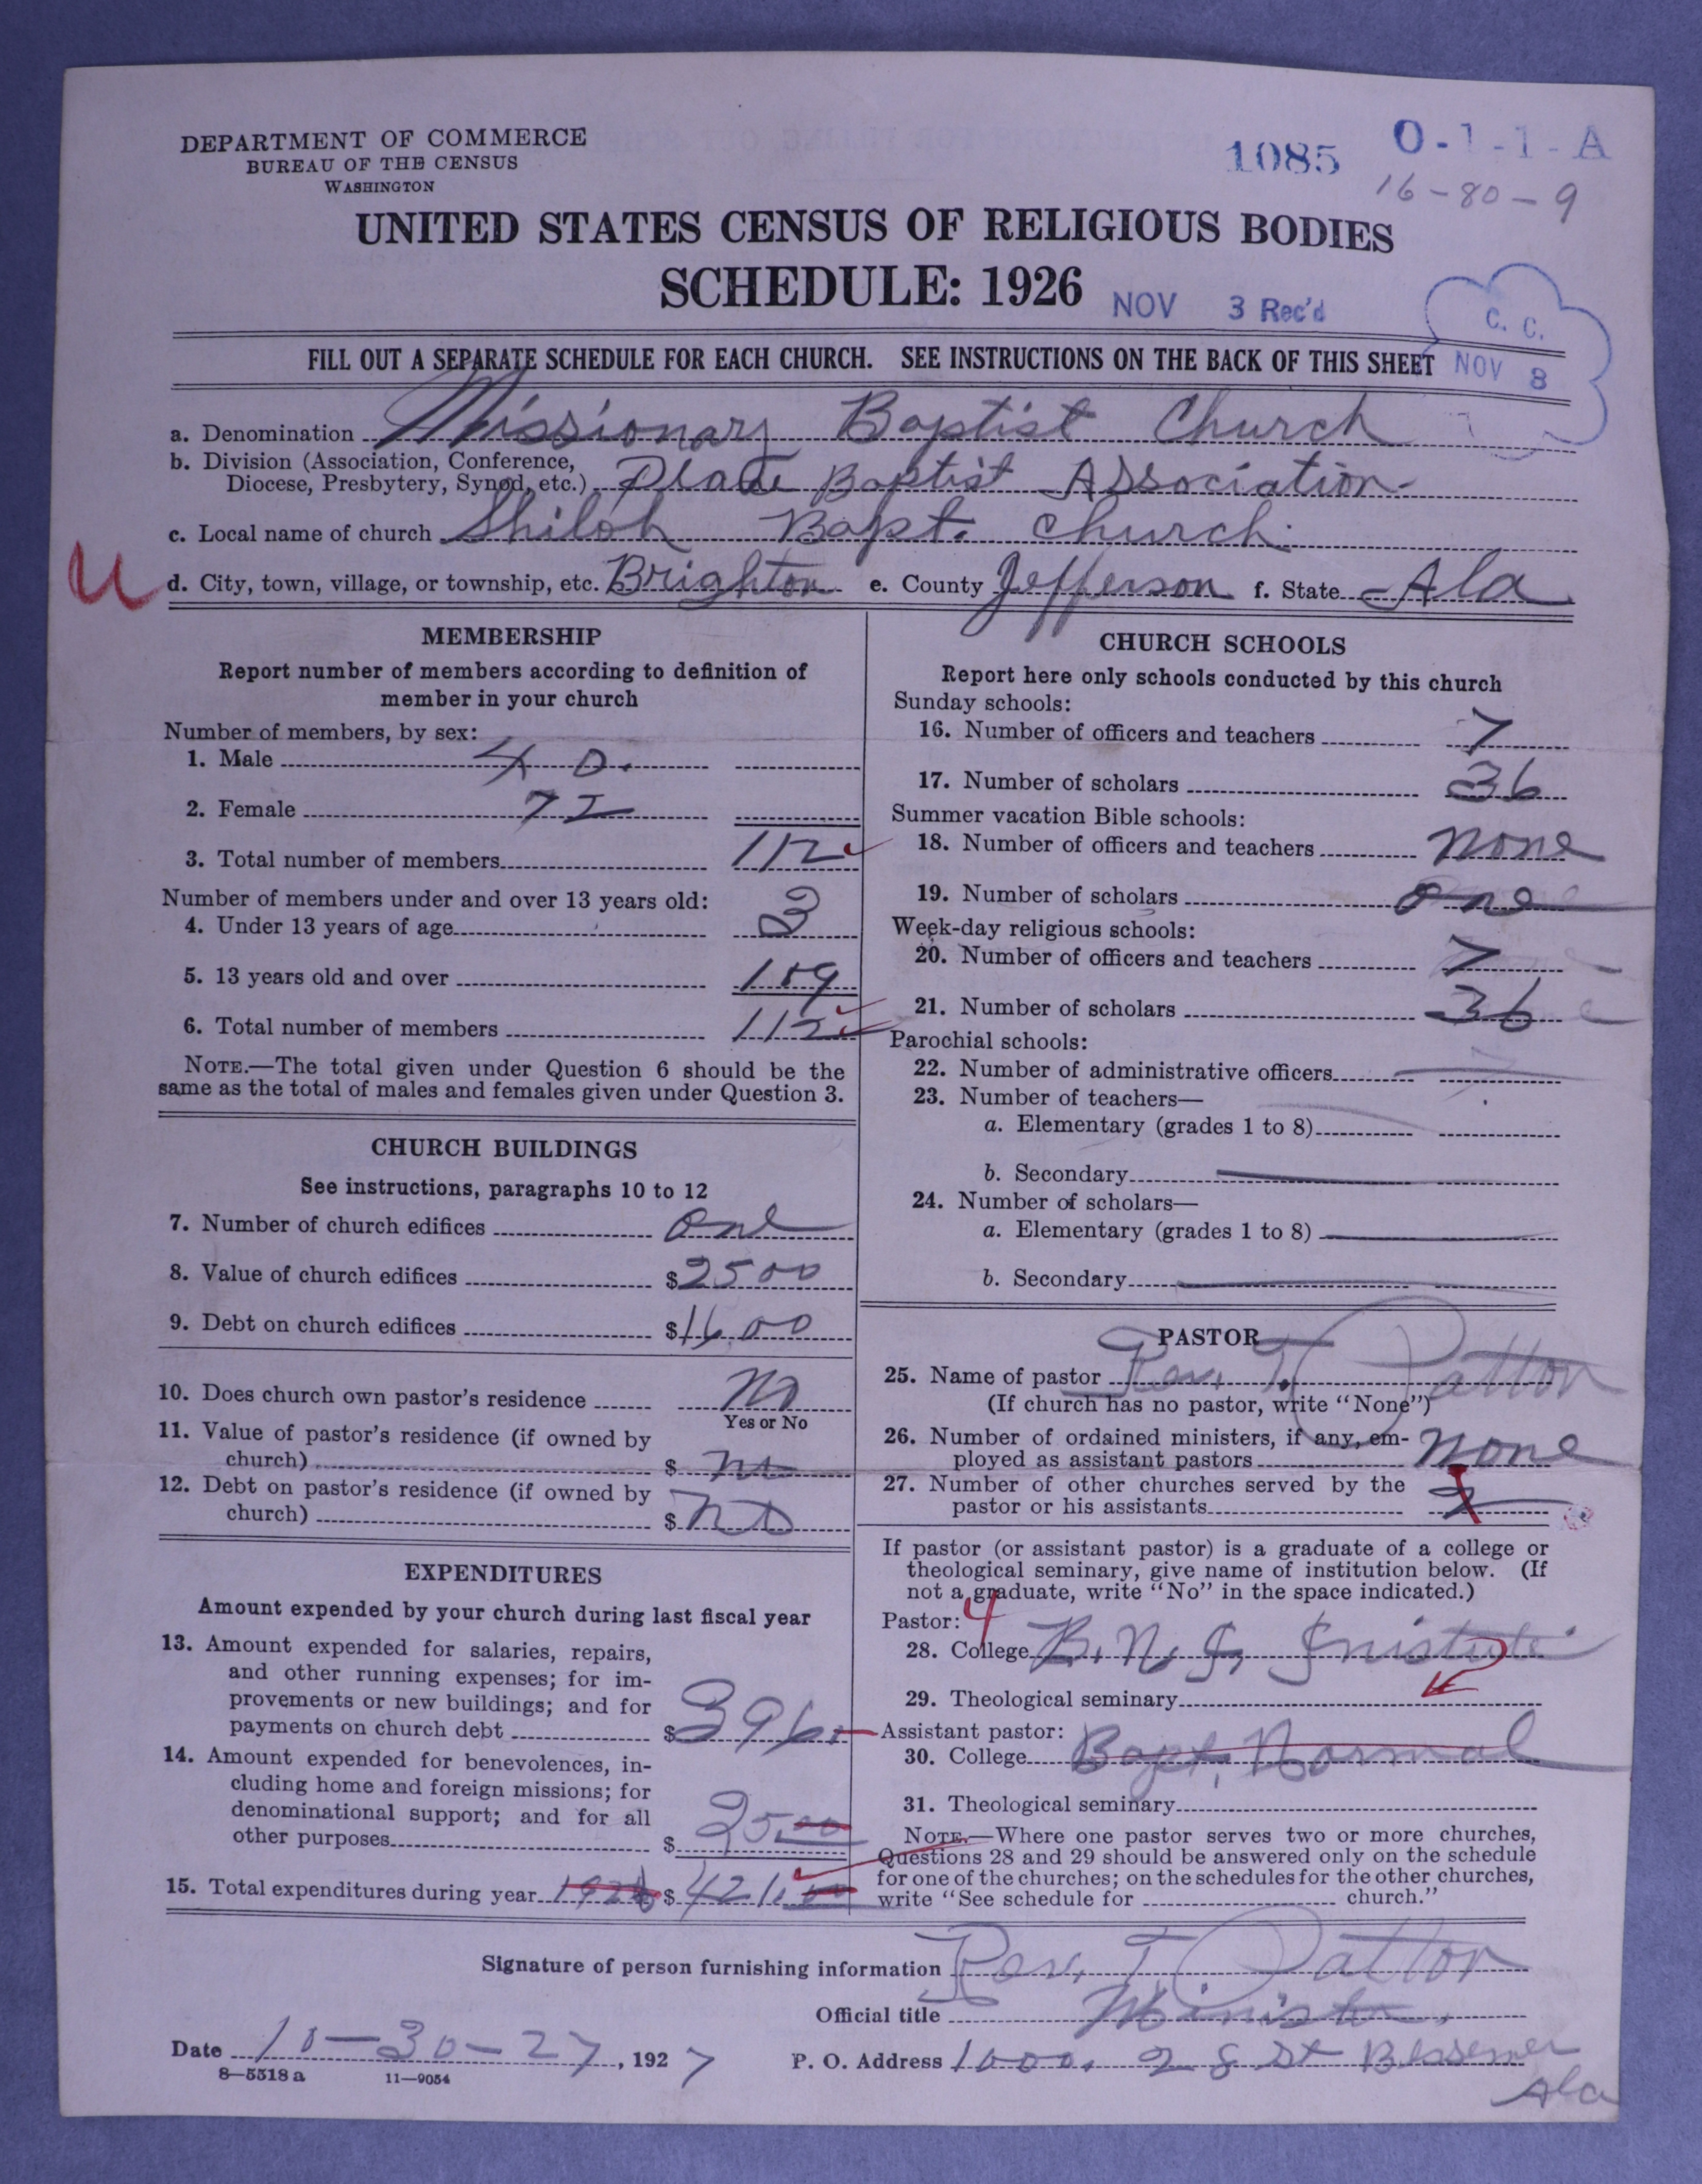 DEPARTMENT OF COMMERCE
BUREAU OF THE CENSUS
WASHINGTON
1085 O-1-1-A
16-80-9
UNITED STATES CENSUS OF RELIGIOUS BODIES
SCHEDULE: 1926
NOV 3 Rec'd
C. C.
NOV 8
FILL OUT A SEPARATE SCHEDULE FOR EACH CHURCH. SEE INSTRUCTIONS ON THE BACK OF THIS SHEET
a. Denomination Missionary Baptist Church
b. Division (Association, Conference,
Diocese, Presbytery, Synod, etc.) Baptist Association
c. Local name of church Shiloh Bapt. Church
U
d. City, town, village, or township, etc. Brighton e. County Jefferson f. State Ala
MEMBERSHIP
Report number of members according to definition of
member in your church
Number of members, by sex:
1. Male 40.
2. Female 72
3. Total number of members 112
Number of members under and over 13 years old:
4. Under 13 years of age 3
5. 13 years old and over 109
6. Total number of members 112
NOTE.—The total given under Question 6 should be the
same as the total of males and females given under Question 3.
CHURCH BUILDINGS
See instructions, paragraphs 10 to 12
7. Number of church edifices one
8. Value of church edifices $2500
9. Debt on church edifices $1600
10. Does church own pastor's residence No
Yes or No
11. Value of pastor's residence (if owned by
church) $ no
12. Debt on pastor's residence (if owned by
church) $ no
EXPENDITURES
Amount expended by your church during last fiscal year
13. Amount expended for salaries, repairs,
and other running expenses; for im-
provements or new buildings; and for
payments on church debt $396.
14. Amount expended for benevolences, in-
cluding home and foreign missions; for
denominational support; and for all
other purposes $ 25.00
15. Total expenditures during year 1926 $ 421.00
CHURCH SCHOOLS
Report here only schools conducted by this church
Sunday schools:
16. Number of officers and teachers 7
17. Number of scholars 36
Summer vacation Bible schools:
18. Number of officers and teachers none
19. Number of scholars one
Week-day religious schools:
20. Number of officers and teachers 7
21. Number of scholars 36
Parochial schools:
22. Number of administrative officers
23. Number of teachers—
a. Elementary (grades 1 to 8)
b. Secondary
24. Number of scholars—
a. Elementary (grades 1 to 8)
b. Secondary
PASTOR
25. Name of pastor Rev. T. Patton
(If church has no pastor, write "None")
26. Number of ordained ministers, if any, em-
ployed as assistant pastors none
27. Number of other churches served by the
pastor or his assistants
If pastor (or assistant pastor) is a graduate of a college or
theological seminary, give name of institution below. (If
not a graduate, write "No" in the space indicated.)
Pastor: 4
28. College B. N. &
29. Theological seminary
Assistant pastor:
30. College Bapt. Normal
31. Theological seminary
NOTE.—Where one pastor serves two or more churches,
Questions 28 and 29 should be answered only on the schedule
for one of the churches; on the schedules for the other churches,
write "See schedule for church."
Signature of person furnishing information Rev. T. Patton
Official title Minister.
Date 10-30-27, 1927 P. O. Address 1000. 28 St Bessemer
Ala
8—5518 a 11—9054